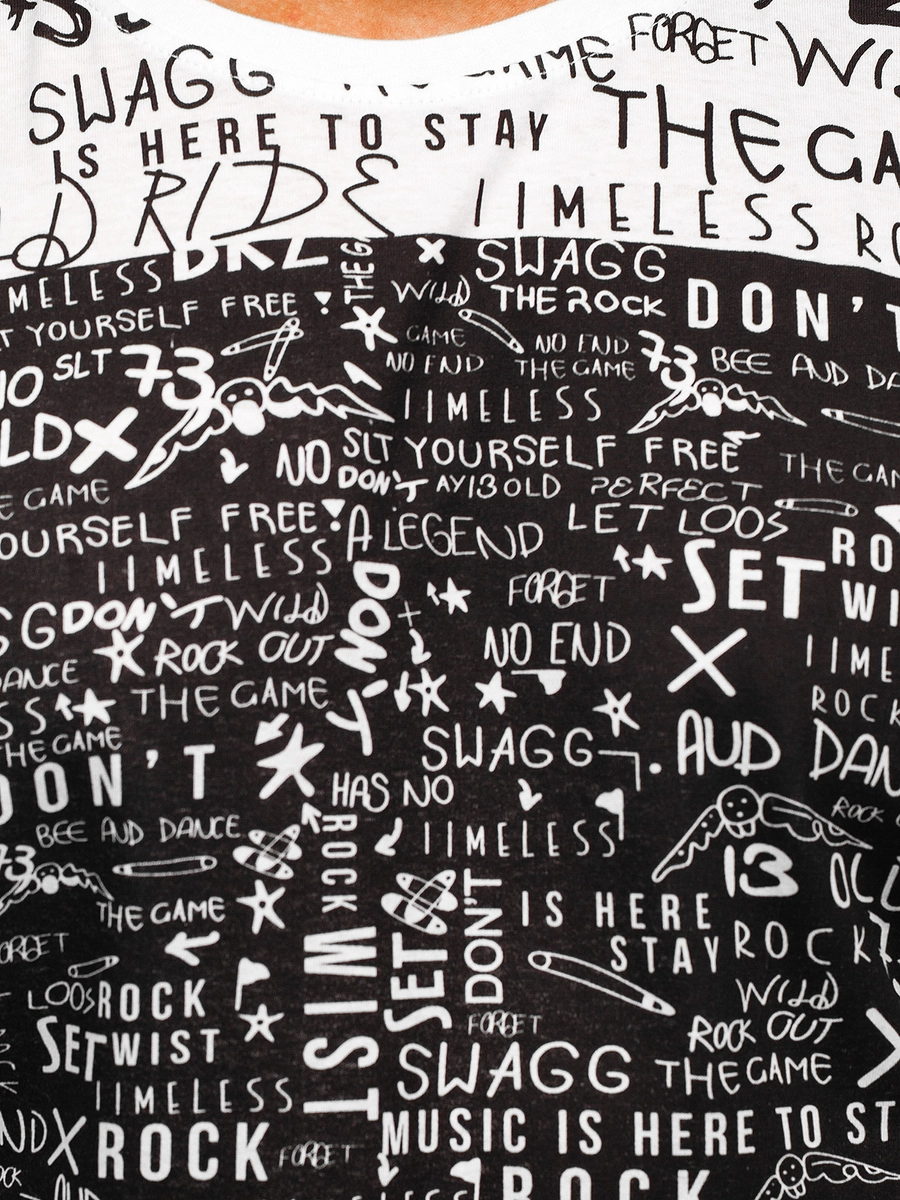 FORGET
SWAGG
THE GA
IS HERE TO STAY
RIDE
IIMELESS
MELESS
SWAGG
YOURSELF FREE
WILD THE ROCK DON'T
GAME
NO END
NO SLT 73
NO END
THE GAME
73
BEE AUD DA
IIMELESS
LD X
NO
SLT YOURSELF FREE
THE GAM
E GAME
DON'T AY13OLD PERFECT
OURSELF FREE
A LEGEND
LET LOOS
IIMELESS
SET
RO
WI
FORGET
DON'T WILD
DON'T
NO END
X
IIME
ROCK OUT
DANCE
ROCK
THE GAME
THE GAME
SWAGG
AUD DAN
DON'T
HAS NO
BEE AUD DANCE
IIMELESS
ROCK
ROCK
73
13
OLD
THE GAME
DON'T
IS HERE
STAY ROCK
WIST
SET
LOOS ROCK
WILD
FORGET
ROCK OUT
SET WIST
SWAGG THE GAME
IIMELESS
MUSIC IS HERE TO ST
X ROCK FORGET
ROCK
AUD